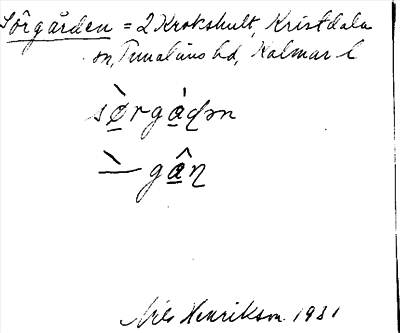 Sörgården = 2 Krokshult, Kristdala
sn, Tunaläns hd, Kalmar l
sø̀rgádən
gân
Nils Henrikson 1931